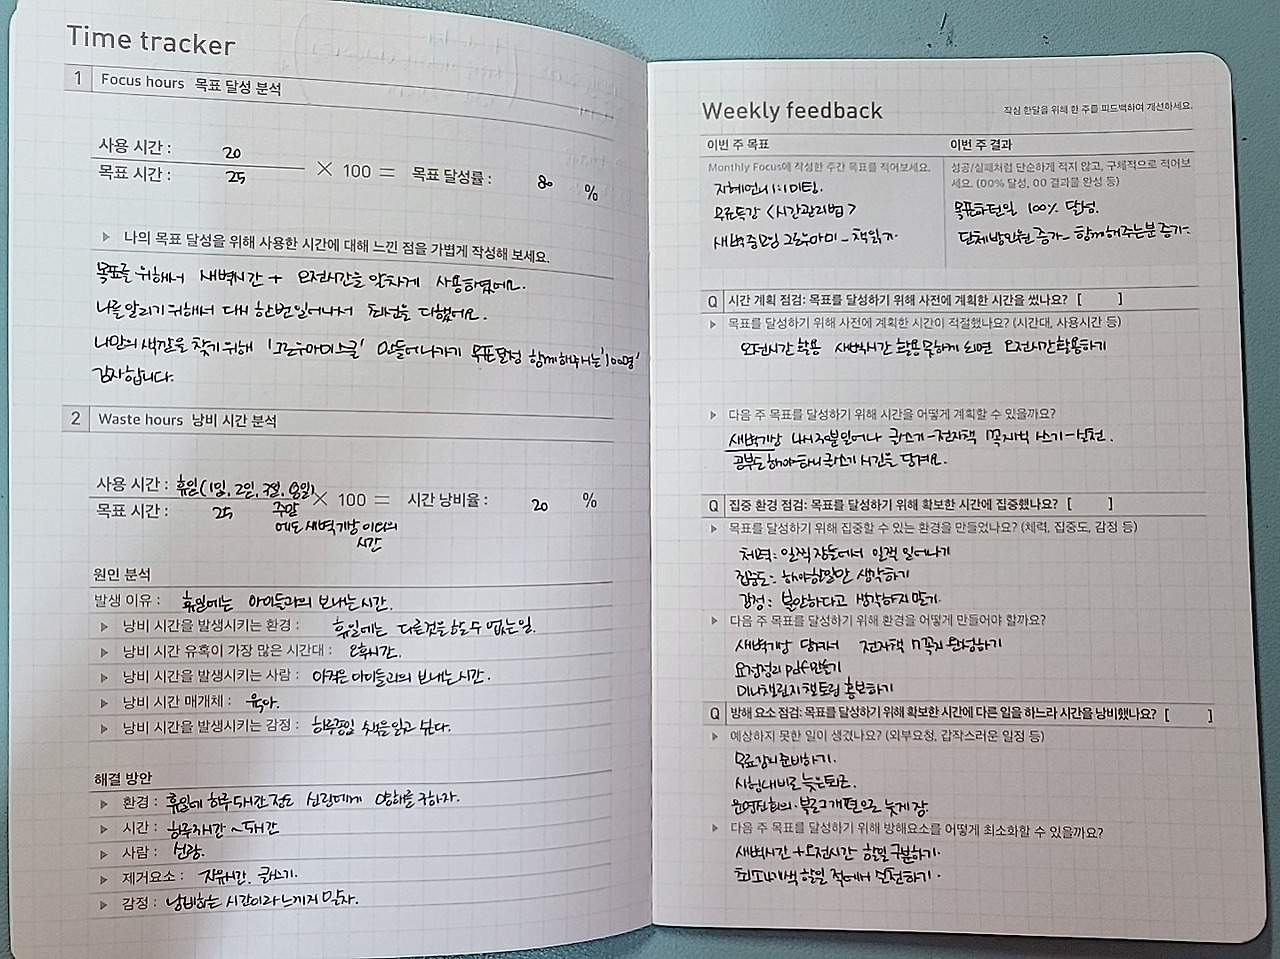 Time tracker
1 Focus hours 목표 달성 분석
사용 시간 : 20
목표 시간 : 25
× 100 = 목표 달성률 : 80 %
▶ 나의 목표 달성을 위해 사용한 시간에 대해 느낀 점을 가볍게 작성해 보세요.
목표를 위해서 새벽시간 + 오전시간을 알차게 사용하였어요.
나를 알리기 위해서 다시 한번 일어나서 최선을 다했어요.
나만의 색깔을 찾기 위해 '그로우아미스쿨' 만들어나가기 목표달성 함께해주시는 '100명'
감사합니다.
2 Waste hours 낭비 시간 분석
사용 시간 : 휴일(1일, 2일, 7일, 8일)
목표 시간 : 25 주말
× 100 = 시간 낭비율 : 20 %
에도 새벽기상 이외의
시간
원인 분석
발생 이유 : 휴일에는 아이들과의 보내는 시간.
▶ 낭비 시간을 발생시키는 환경 : 휴일에는 다른것을 할 수 없는 일.
▶ 낭비 시간 유혹이 가장 많은 시간대 : 오후시간.
▶ 낭비 시간을 발생시키는 사람 : 아직은 아이들과의 보내는 시간.
▶ 낭비 시간 매개체 : 육아.
▶ 낭비 시간을 발생시키는 감정 : 하루종일 책을 읽고 싶다.
해결 방안
▶ 환경 : 휴일에 하루 5시간 정도 신랑에게 양해를 구하자.
▶ 시간 : 하루 3시간 ~ 5시간
▶ 사람 : 신랑.
▶ 제거요소 : 자유시간, 글쓰기.
▶ 감정 : 낭비하는 시간이라 느끼지 말자.
Weekly feedback
작심 한달을 위해 한 주를 피드백하여 개선하세요.
이번 주 목표
Monthly Focus에 작성한 주간 목표를 적어보세요.
지혜언니 1:1 미팅.
무료특강 <시간관리법>
새벽줌모임 그로우아미 - 책읽자
이번 주 결과
성공/실패처럼 단순하게 적지 않고, 구체적으로 적어보
세요. (00% 달성, 00 결과물 완성 등)
목표하던일 100% 달성.
단체방인원 증가 - 함께해주는분 증가.
Q 시간 계획 점검: 목표를 달성하기 위해 사전에 계획한 시간을 썼나요? [ ]
▶ 목표를 달성하기 위해 사전에 계획한 시간이 적절했나요? (시간대, 사용시간 등)
오전시간 활용 새벽시간 활용 못하게 되면 오전시간 활용하기
▶ 다음 주 목표를 달성하기 위해 시간을 어떻게 계획할 수 있을까요?
새벽기상 4시 30분 일어나 글쓰기 - 전자책 7꼭지씩 쓰기 - 실천.
공부도 해야하니 글쓰기 시간을 당겨요.
Q 집중 환경 점검: 목표를 달성하기 위해 확보한 시간에 집중했나요? [ ]
▶ 목표를 달성하기 위해 집중할 수 있는 환경을 만들었나요? (체력, 집중도, 감정 등)
체력 : 일찍 잠들어서 일찍 일어나기
집중도 : 해야할일만 생각하기
감정 : 불안하다고 생각하지 말기.
▶ 다음 주 목표를 달성하기 위해 환경을 어떻게 만들어야 할까요?
새벽기상 당겨서 전자책 7꼭지 완성하기
요점정리 pdf 만들기
미니챌린지 챌토링 홍보하기
Q 방해 요소 점검: 목표를 달성하기 위해 확보한 시간에 다른 일을 하느라 시간을 낭비했나요? [ ]
▶ 예상하지 못한 일이 생겼나요? (외부요청, 갑작스러운 일정 등)
무료강의 준비하기.
시험대비로 늦은퇴근.
운영진회의. 블로그 개편으로 늦게 잠.
▶ 다음 주 목표를 달성하기 위해 방해요소를 어떻게 최소화할 수 있을까요?
새벽시간 + 오전시간 할일 구분하기.
할일 적어서 실천하기.